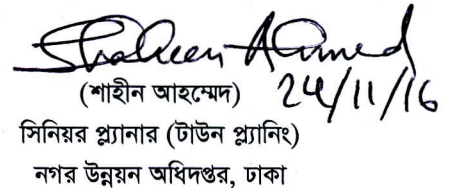 Shaheen Ahmed
(শাহীন আহম্মেদ) 24/11/16
সিনিয়র প্ল্যানার (টাউন প্ল্যানিং)
নগর উন্নয়ন অধিদপ্তর, ঢাকা